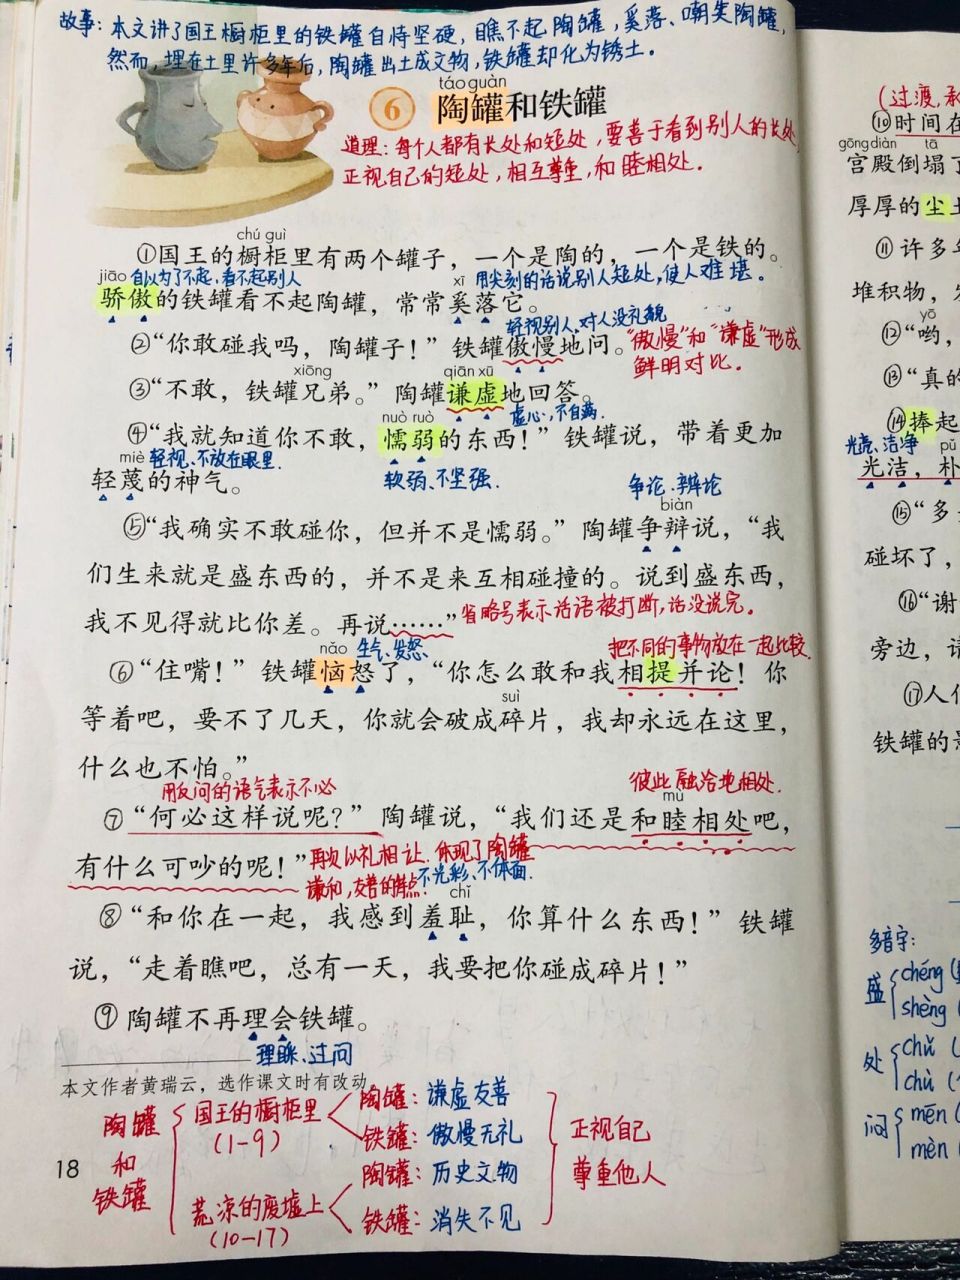 故事：本文讲了国王橱柜里的铁罐自恃坚硬，瞧不起陶罐，奚落、嘲笑陶罐，
然而，埋在土里许多年后，陶罐出土成文物，铁罐却化为锈土。
táo guàn
6 陶罐和铁罐
道理：每个人都有长处和短处，要善于看到别人的长处
正视自己的短处，相互尊重，和睦相处。
chú guì
①国王的橱柜里有两个罐子，一个是陶的，一个是铁的。
jiāo 自以为了不起，看不起别人 xī 用尖刻的话说别人短处，使人难堪。
骄傲的铁罐看不起陶罐，常常奚落它。
轻视别人，对人没礼貌
②“你敢碰我吗，陶罐子！”铁罐傲慢地问。
“傲慢”和“谦虚”形成
鲜明对比。
xiōng qiān xū
③“不敢，铁罐兄弟。”陶罐谦虚地回答。
nuò ruò 虚心，不自满.
④“我就知道你不敢，懦弱的东西！”铁罐说，带着更加
miè 轻视、不放在眼里.
轻蔑的神气。
软弱、不坚强.
争论、辩论
biàn
⑤“我确实不敢碰你，但并不是懦弱。”陶罐争辩说，“我
们生来就是盛东西的，并不是来互相碰撞的。说到盛东西，
我不见得就比你差。再说……”
省略号表示话语被打断，话没说完。
nǎo 生气、发怒、
把不同的事物放在一起比较.
⑥“住嘴！”铁罐恼怒了，“你怎么敢和我相提并论！你
suì
等着吧，要不了几天，你就会破成碎片，我却永远在这里，
什么也不怕。”
用反问的语气表示不必
彼此融洽地相处.
mù
⑦“何必这样说呢？”陶罐说，“我们还是和睦相处吧，
有什么可吵的呢！”
再次以礼相让.体现了陶罐
谦和，友善的特点.
不光彩、不体面.
chǐ
⑧“和你在一起，我感到羞耻，你算什么东西！”铁罐
说，“走着瞧吧，总有一天，我要把你碰成碎片！”
⑨陶罐不再理会铁罐。
理睬、过问
本文作者黄瑞云，选作课文时有改动。
陶罐
和
铁罐
国王的橱柜里
(1-9)
陶罐：谦虚友善
铁罐：傲慢无礼
荒凉的废墟上
(10-17)
陶罐：历史文物
铁罐：消失不见
正视自己
尊重他人
18
(过渡,承
⑩时间在
gōng diàn tā
宫殿倒塌了
厚厚的尘土
⑪许多年
堆积物，发
yō
⑫“哟，
⑬“真的
⑭捧起
光亮、洁净 pǔ
光洁，朴
⑮“多
碰坏了，
⑯“谢
旁边，请
⑰人们
铁罐的影
多音字：
盛 chéng
shèng
处 chǔ
chù
闷 mēn
mèn